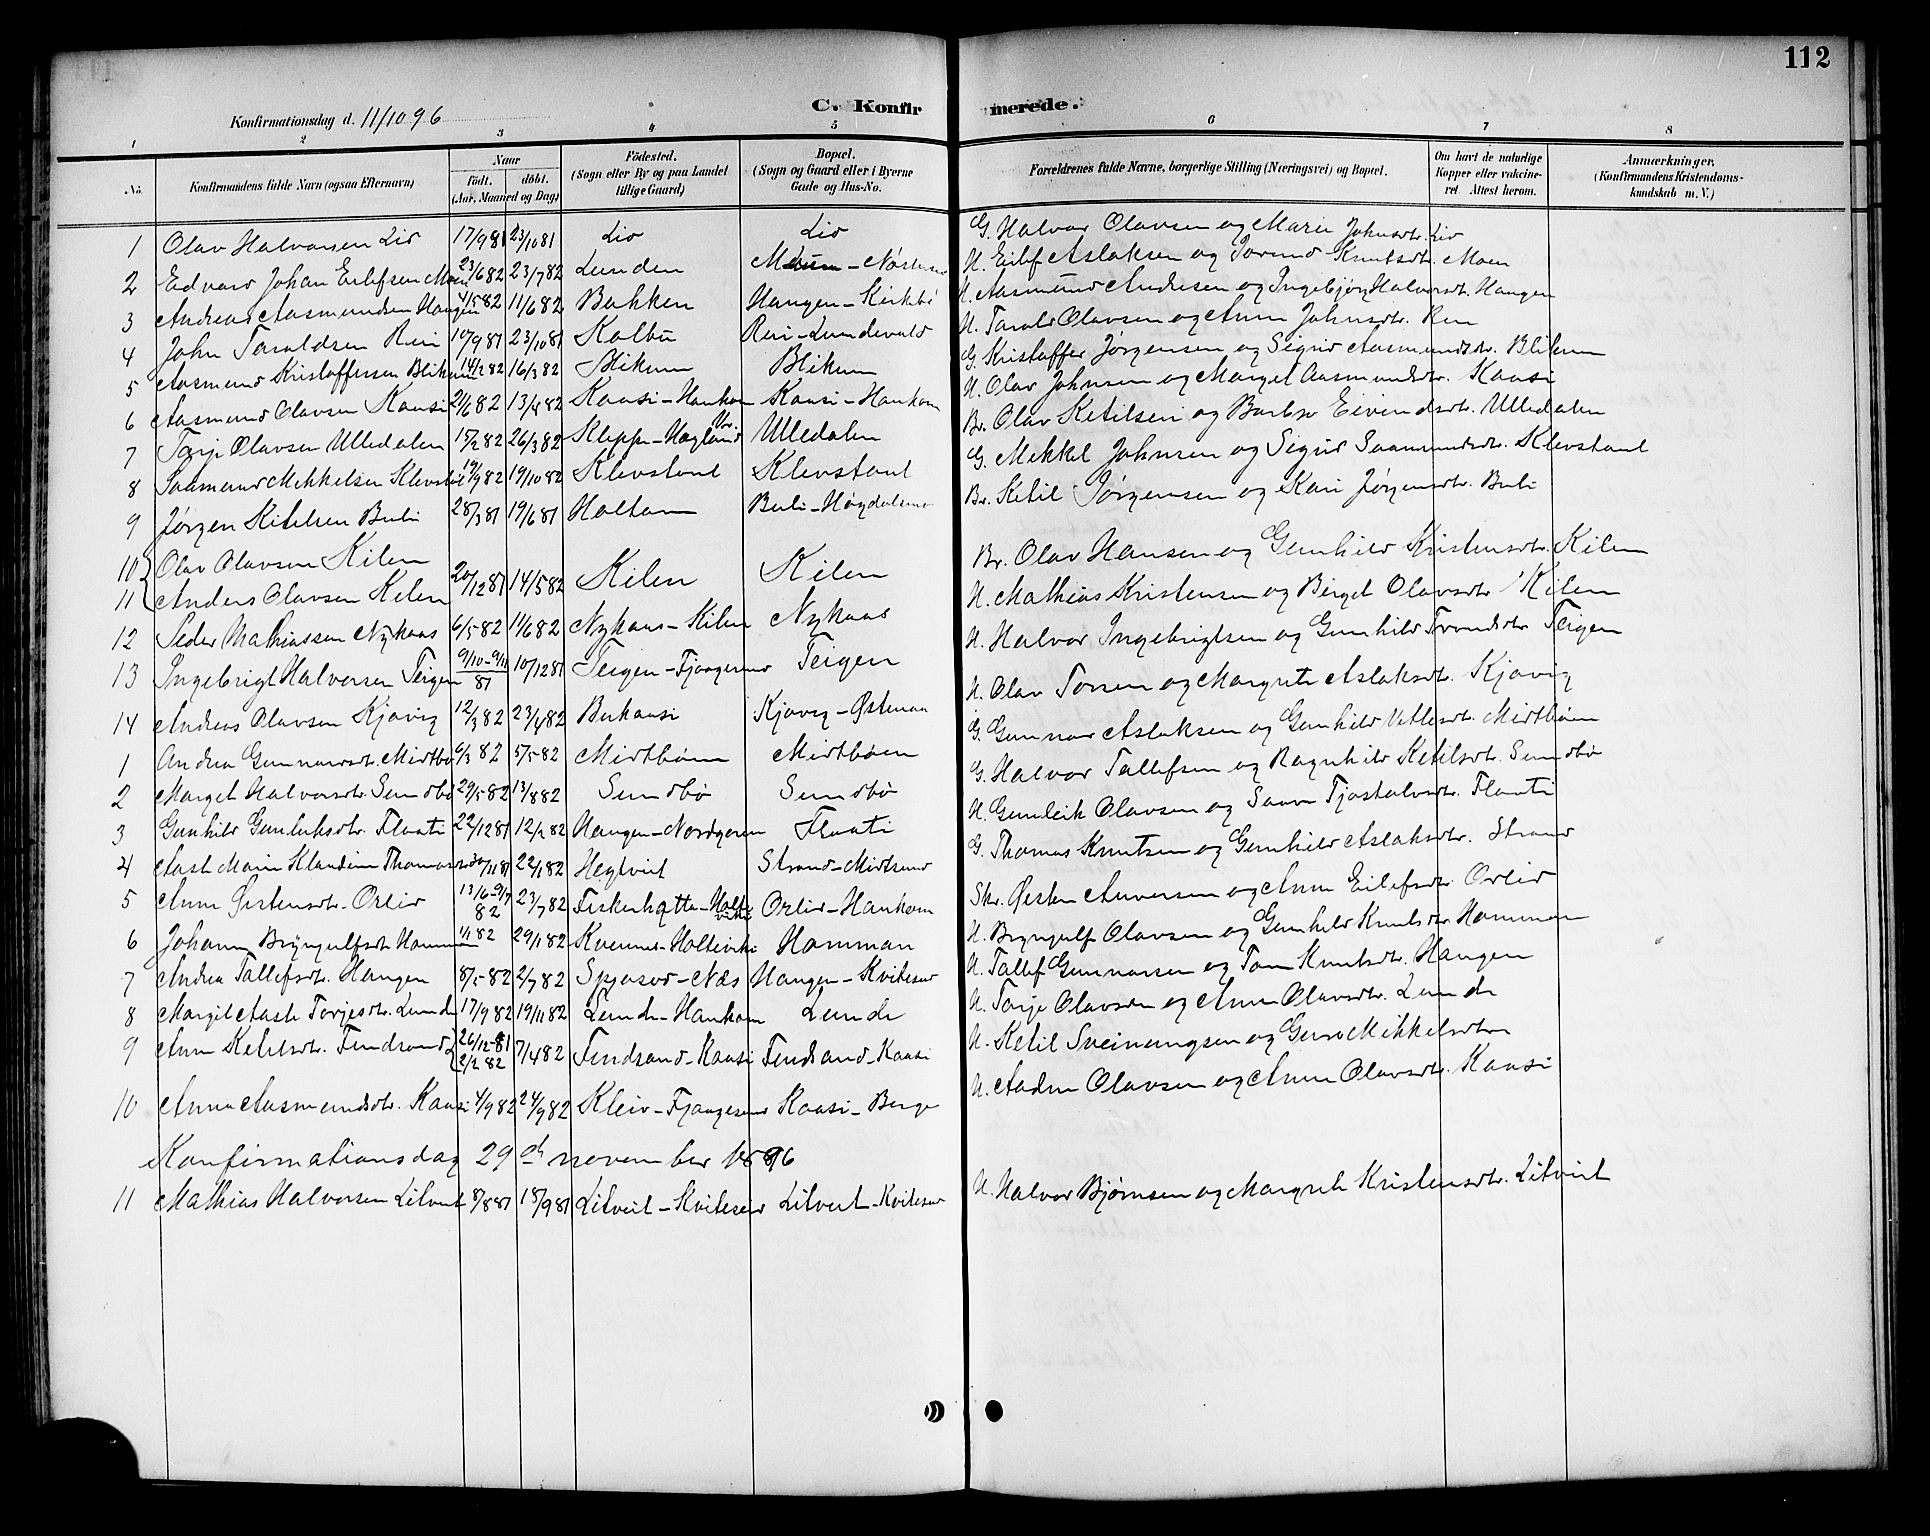 112
C. Konfirmerede.
Konfirmationsdag d. 11/10 96
1 2 3 4 5 6 7 8
No. Konfirmandens fulde Navn (ogsaa Efternavn) Naar Födt. döbt. (Aar, Maaned og Dag) Födested. (Sogn eller By og paa Landet tillige Gaard) Bopæl. (Sogn og Gaard eller i Byerne Gade og Hus-No. Forældrenes fulde Navne, borgerlige Stilling (Næringsvei) og Bopæl. Om havt de naturlige Kopper eller vakcineret Attest herom. Anmærkninger. (Konfirmandens Kristendomskundskab m. V.)
1 Olav Halvorsen Liv 17/9 81 23/10 81 Liv Liv G. Halvor Olavsen og Marie Johnsdtr. Liv
2 Edvard Johan Eilefsen Moen 23/6 82 23/7 82 Lunden N. Eilef Aslaksen og Jorund Knutsdtr. Moen
3 Andreas Aasmundsen Haugen 4/5 82 11/6 82 Bakken Haugen - Kirkebö N. Aasmund Andresen og Ingebjörg Halvorsdtr. Haugen
4 John Taraldsen Rui 10/9 81 23/10 81 Kolbu Rui - Lundevald N. Tarald Olavsen og Anne Johnsdtr.
5 Aasmund Kristoffersen Blikum 14/2 82 16/3 82 Blikum Blikum G. Kristoffer Jørgensen og Sigrid Aasmundsdtr. Blikum
6 Aasmund Olavsen Kaasi 2/6 82 13/4 82 Kaasi - Haukom Kaasi - Haukom N. Olav Johnsen og Margit Aasmundsdtr. Kaasi
7 Torje Olavsen Ulledalen 15/2 82 26/3 82 Kleppe - Hægland Ulledalen Br. Olav Ketilsen og Barbro Eivindsdtr. Ulledalen
8 Saamund Mikkelsen Klevstøl 19/9 82 19/10 82 Klevstaul Klevstaul G. Mekkel Johnsen og Sigrid Saamundsdtr. Klevstaul
9 Jørgen Kitilsen Buli 28/3 81 19/6 81 Holtan Buli - Høgdalens Br. Kitil Jørgensen og Kari Jørgensdtr. Buli
10 Olav Olavsen Kilen Br. Olav Hansen og Gunhild Kristensdtr. Kilen
11 Anders Olavsen Kilen 20/12 81 14/5 82 Kilen Kilen
12 Peder Mathiassen Nykaas 6/5 82 11/6 82 Nykaas - Kilen Nykaas N. Mathias Kristensen og Birgit Olavsdtr. Kilen
13 Ingebrigt Halvorsen Teigen 9/10 - 9/11 81 10/12 81 Teigen - Fjaagesund Teigen N. Halvor Ingebrigtsen og Gunhild Trondsdtr Teigen
14 Andreas Olavsen Kjavig 12/3 82 23/4 82 Berkaasi Kjavig - N. Olav Torsen og Margrete Aslaksdtr. Kjavig
1 Andrea Gunnarsdtr. Mirtbö 6/3 82 5/5 82 Mirtböen Mirtböen G. Gunnar Aslaksen og Gunhild Vetlesdtr. Mirtböen
2 Margit Halvorsdtr. Sundbö 29/5 82 13/8 82 Sundbö Sundbö G. Halvor Tallefsen og Ragnhild Ketilsdtr. Sundbö
3 Gunhild Gunleiksdtr. Flaati 22/12 81 12/2 82 Haugen - Flaati N. Gunleik Olavsen og Saave Tjostalvsdtr. Flaati
4 Aaste Marie Klaudine Thomasdtr 30/11 81 22/1 82 Hegtveit Strand - Mirtsund G. Thomas Knutsen og Gunhild Aslaksdtr. Strand
5 Anne Østensdtr. Orleid 13/6 - 9/7 82 23/7 82 Fiskerhytta - Orleid - Haukom Skr. Østen Anversen og Anne Eilefsdtr. Orleid
6 Johanne Bryngulfsdtr Hamman 1/1 82 29/1 82 Hamman N. Bryngulf Olavsen og Gunhild Knutsdtr Hamman
7 Andrea Tallefsdtr. Haugen 8/5 82 2/7 82 Spjosod - Næs Haugen - Kviteseid N. Tallef Gunnarsen og Tone Knutsdtr. Haugen
8 Margit Aaste Torjesdtr. Lunde 17/9 82 19/11 82 Lunde - Haukom Lunde N. Torje Olavsen og Anne Olavsdtr. Lunde
9 Anne Ketilsdtr. Findsand 26/12 81 2/2 82 7/4 82 Findsand - Kaasi Findsand - Kaasi N. Ketil Sveinungsen og Guro Mikkelsdtr
10 Anne Aasmundsdtr. Kaasi 4/9 82 24/9 82 Kleiv - Fjaagesund Kaasi - Berge N. Olavsen og Anne Olavsdtr. Kaasi
Konfirmationsdag 29de november 1896
11 Mathias Halvorsen Litveit 8/8 81 18/9 81 Litveit - Kviteseid Litveit - Kviteseid N. Halvor Bjørnsen og Margrete Kristensdtr. Litveit